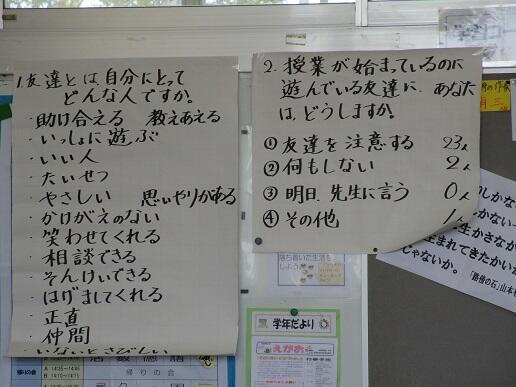 1.友達とは自分にとって
どんな人ですか。
・助け合える 教えあえる
・いっしょに遊ぶ
・いい人
・たいせつ
・やさしい 思いやりがある
・かけがえのない
・笑わせてくれる
・相談できる
・そんけいできる
・はげましてくれる
・正直
・仲間
・いないとさびしい
2.授業が始まっているのに
遊んでいる友達に、あなた
は、どうしますか。
① 友達を注意する 23人
② 何もしない 2人
③ 明日、先生に言う 0人
④ その他 1人
じゃないか。
「路傍の石」山本
落ち着いた生活を
しよう
学年だより
えがお
帰りの会